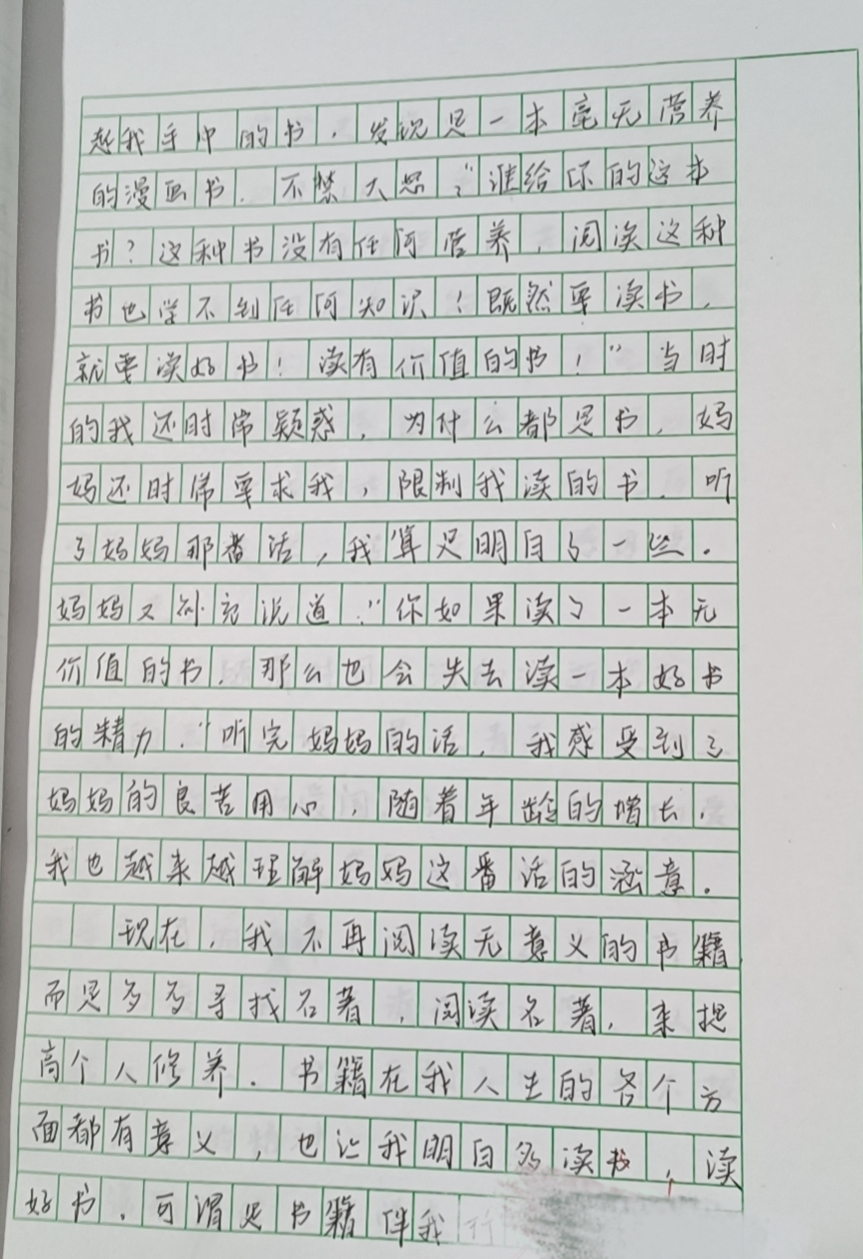 起我手中的书，发现是一本毫无营养
的漫画书，不禁大怒：“谁给你的这本
书？这种书没有任何营养，阅读这种
书也学不到任何知识！既然要读书，
就要读好书！读有价值的书！”当时
的我还时常疑惑，为什么都是书，妈
妈还时常要求我，限制我读的书，听
了妈妈那番话，我算是明白了一些。
妈妈又补充说道：“你如果读了一本无
价值的书，那么也会失去读一本好书
的精力．”听完妈妈的话，我感受到了
妈妈的良苦用心，随着年龄的增长，
我也越来越理解妈妈这番话的涵意。
现在，我不再阅读无意义的书籍
而是多多寻找名著，阅读名著，来提
高个人修养．书籍在我人生的各个方
面都有意义，也让我明白多读书，读
好书，可谓是书籍伴我行